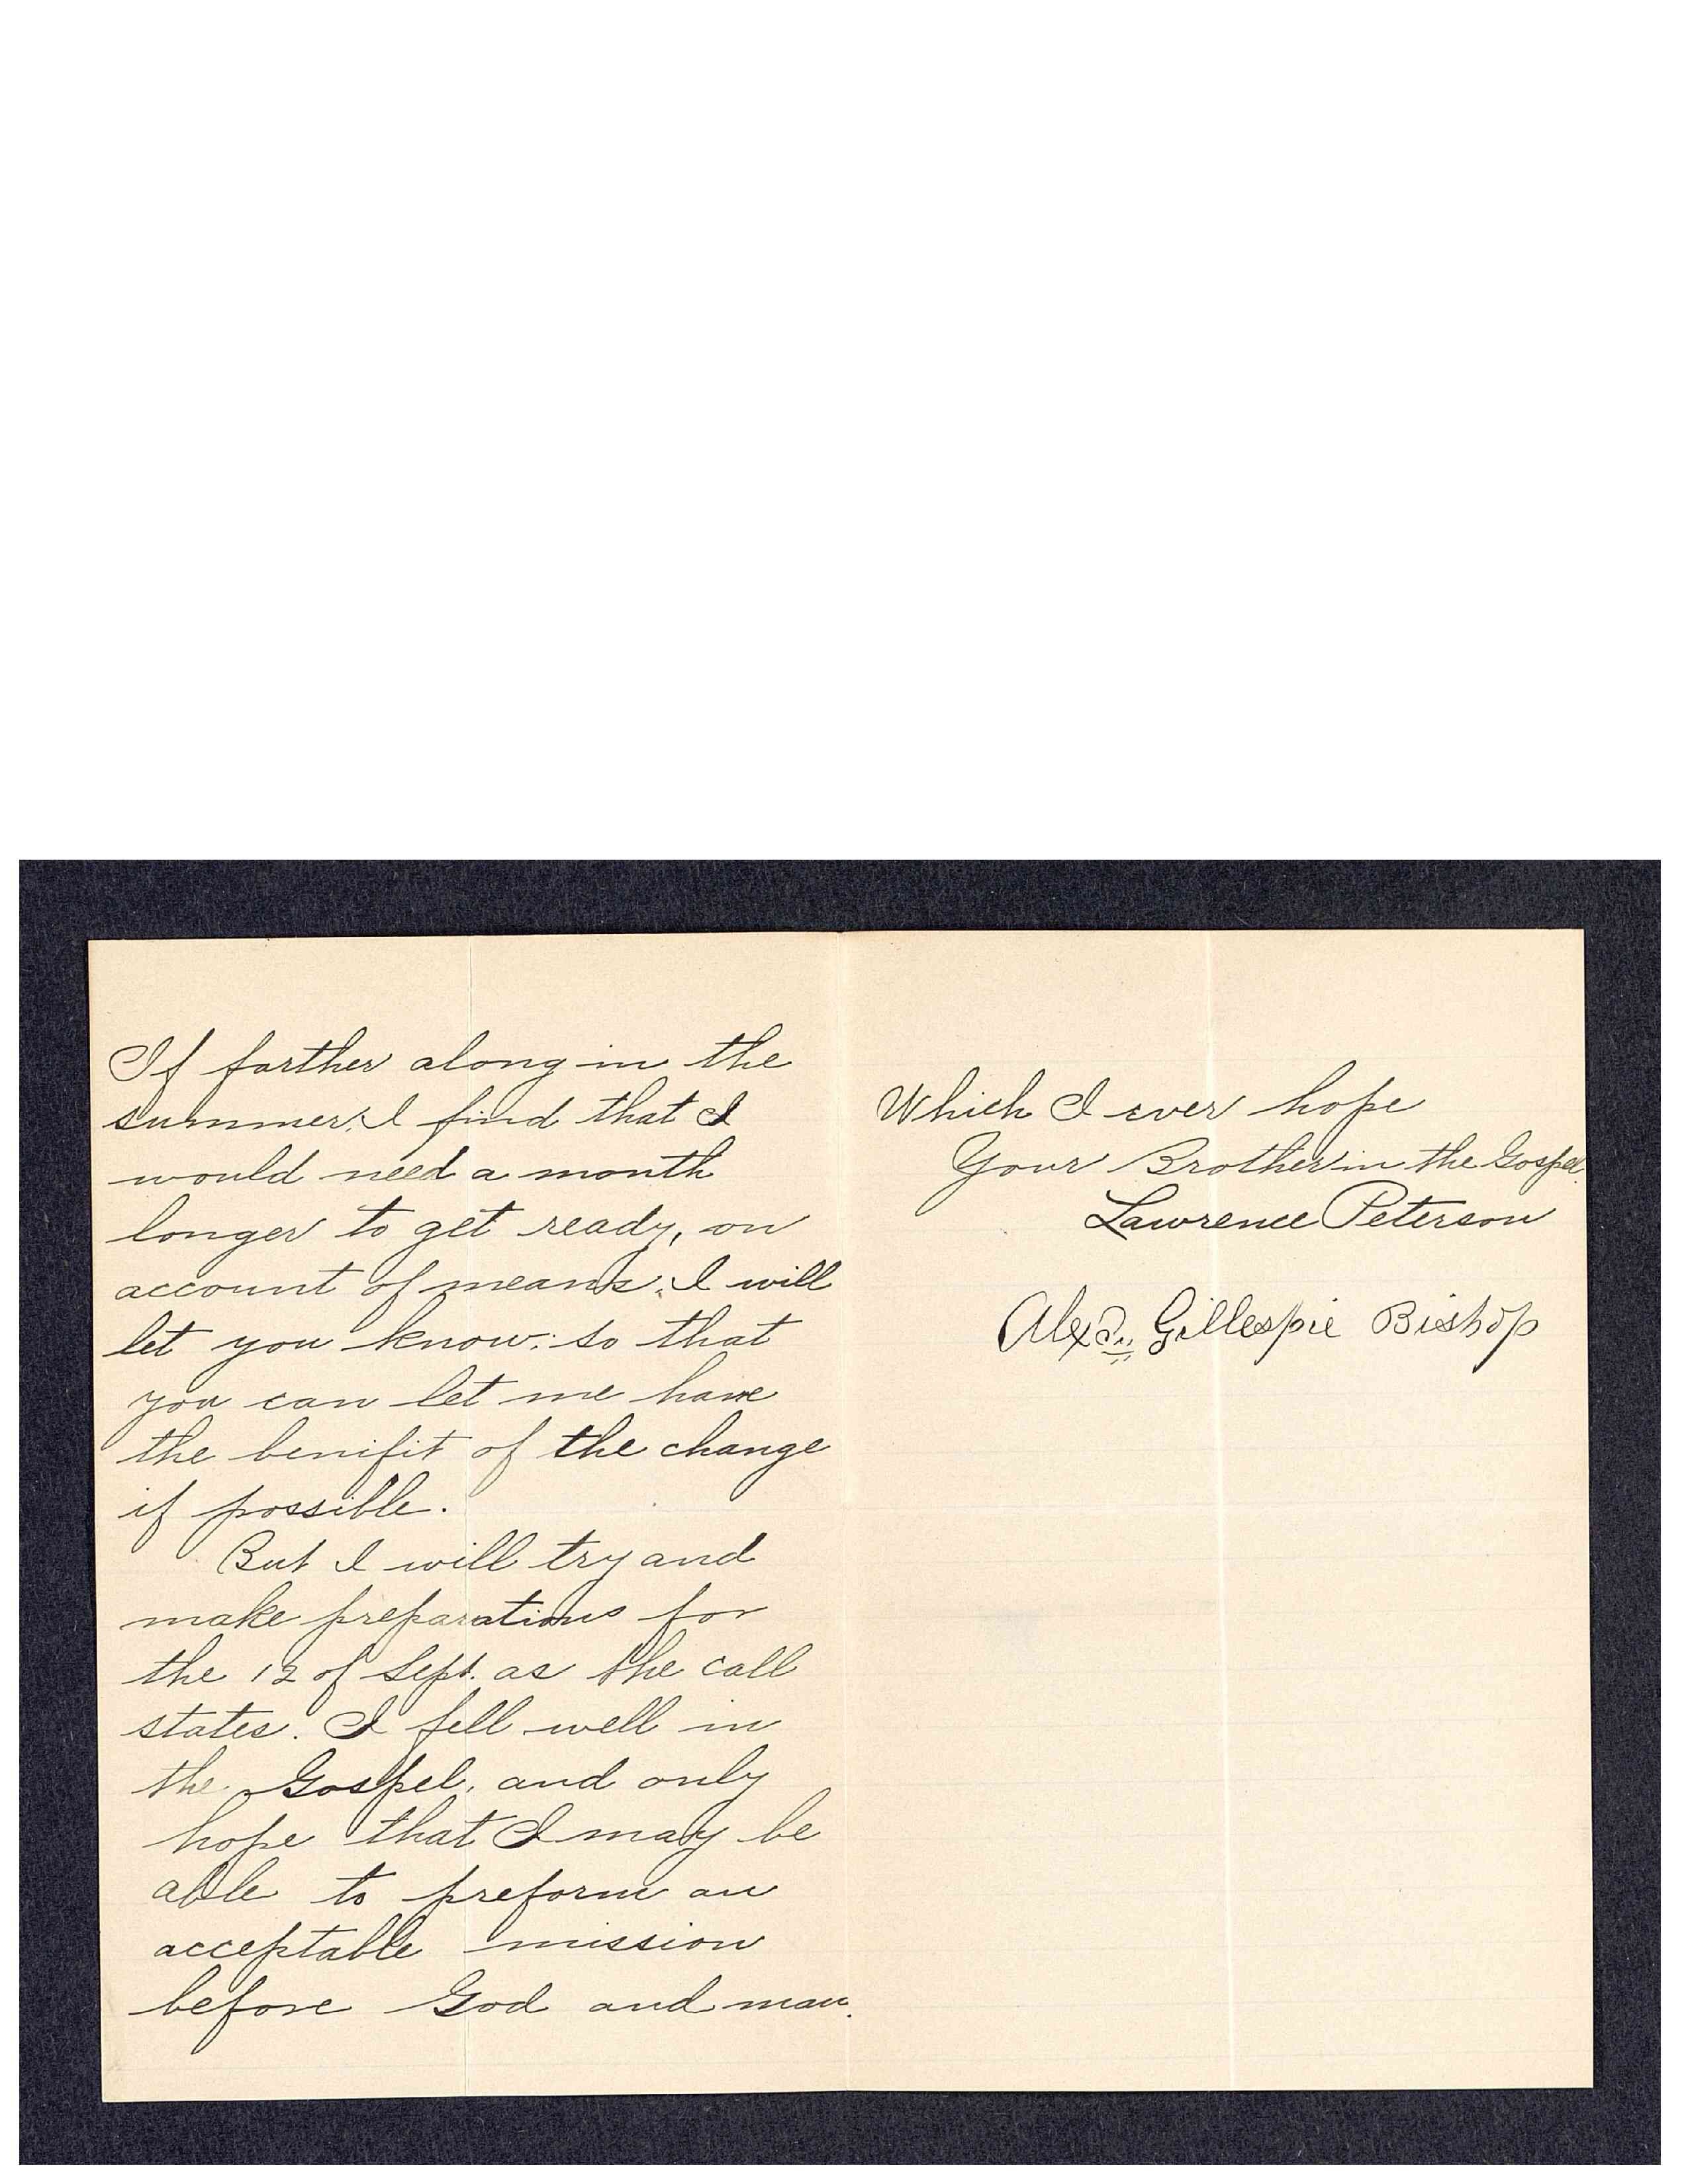 If farther along in the
summer, I find that I
would need a month
longer to get ready, on
account of means, I will
let you know; so that
you can let me have
the benifit of the change
if possible.
But I will try and
make preparations for
the 12 of Sept. as the call
states. I fell well in
the Gospel, and only
hope that I may be
able to preform an
acceptable mission
before God and man.
Which I ever hope
Your Brother in the Gospel.
Lawrence Peterson
Alexr. Gillespie Bishop